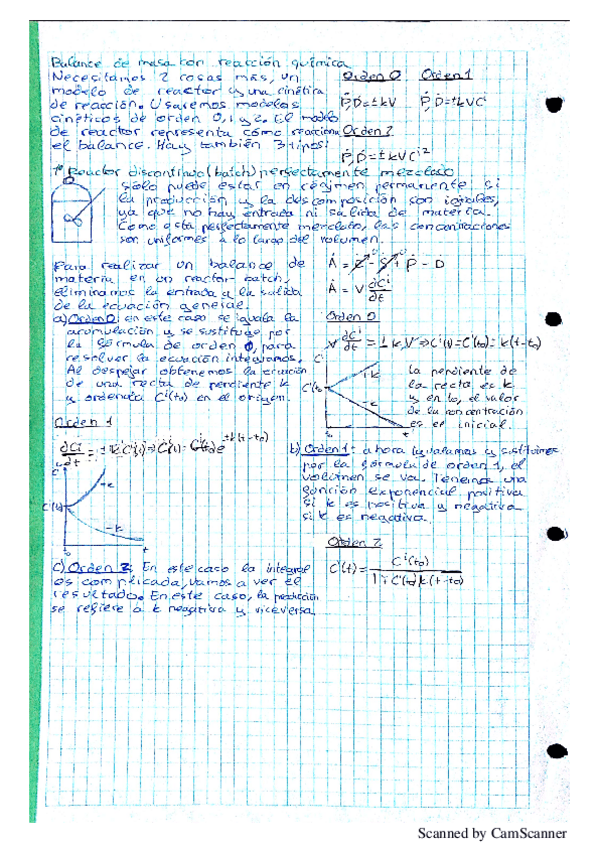 Balance de masa con reacción química
Necesitamos 2 cosas más, un
modelo de reactor y una cinética
de reacción. Usaremos modelos
cinéticos de orden 0, 1 y 2. El modelo
de reactor representa cómo reacciona
el balance. Hay también 3 tipos:
Orden 0 Orden 1
Ṗ,Ḋ=±kV Ṗ,Ḋ=±kVCⁱ
Orden 2
Ṗ,Ḋ=±kVCⁱ²
1º Reactor discontinuo (batch) perfectamente mezclado
sólo puede estar en régimen permanente si
la producción y la descomposición son iguales,
ya que no hay entrada ni salida de materia.
Como está perfectamente mezclado, las concentraciones
son uniformes a lo largo del volumen.
Para realizar un balance de
materia en un reactor batch,
eliminamos la entrada y la salida
de la ecuación general.
Ȧ = Ė - Ṡ + Ṗ - Ḋ
Ȧ = V dCⁱ/dt
a) Orden 0: en este caso se iguala la
acumulación y se sustituye por
la fórmula de orden 0, para
resolver la ecuación integramos.
Al despejar obtenemos la ecuación
de una recta de pendiente k
y ordenada Cⁱ(t0) en el origen.
Orden 0
V dCⁱ/dt = ±kV ⇒ Cⁱ(t)=Cⁱ(t0)± k(t-t0)
Cⁱ
+k
Cⁱ(t0)
-k
t0 t
La pendiente de
la recta es k
y en t0, el valor
de la concentración
es el inicial.
Orden 1
dCⁱ/dt = ±kCⁱ(t) ⇒ Cⁱ(t)=Cⁱ(t0)e^±k(t-t0)
Cⁱ
Cⁱ(t0)
-k
t0 t
b) Orden 1: ahora igualamos y sustituimos
por la fórmula de orden 1, el
volumen se va. Tenemos una
función exponencial positiva
si k es positiva y negativa
si k es negativa.
c) Orden 2: En este caso la integral
es complicada, vamos a ver el
resultado. En este caso, la producción
se refiere a k negativa y viceversa.
Orden 2
Cⁱ(t)= Cⁱ(t0) / 1± Cⁱ(t0)k(t-t0)
Scanned by CamScanner